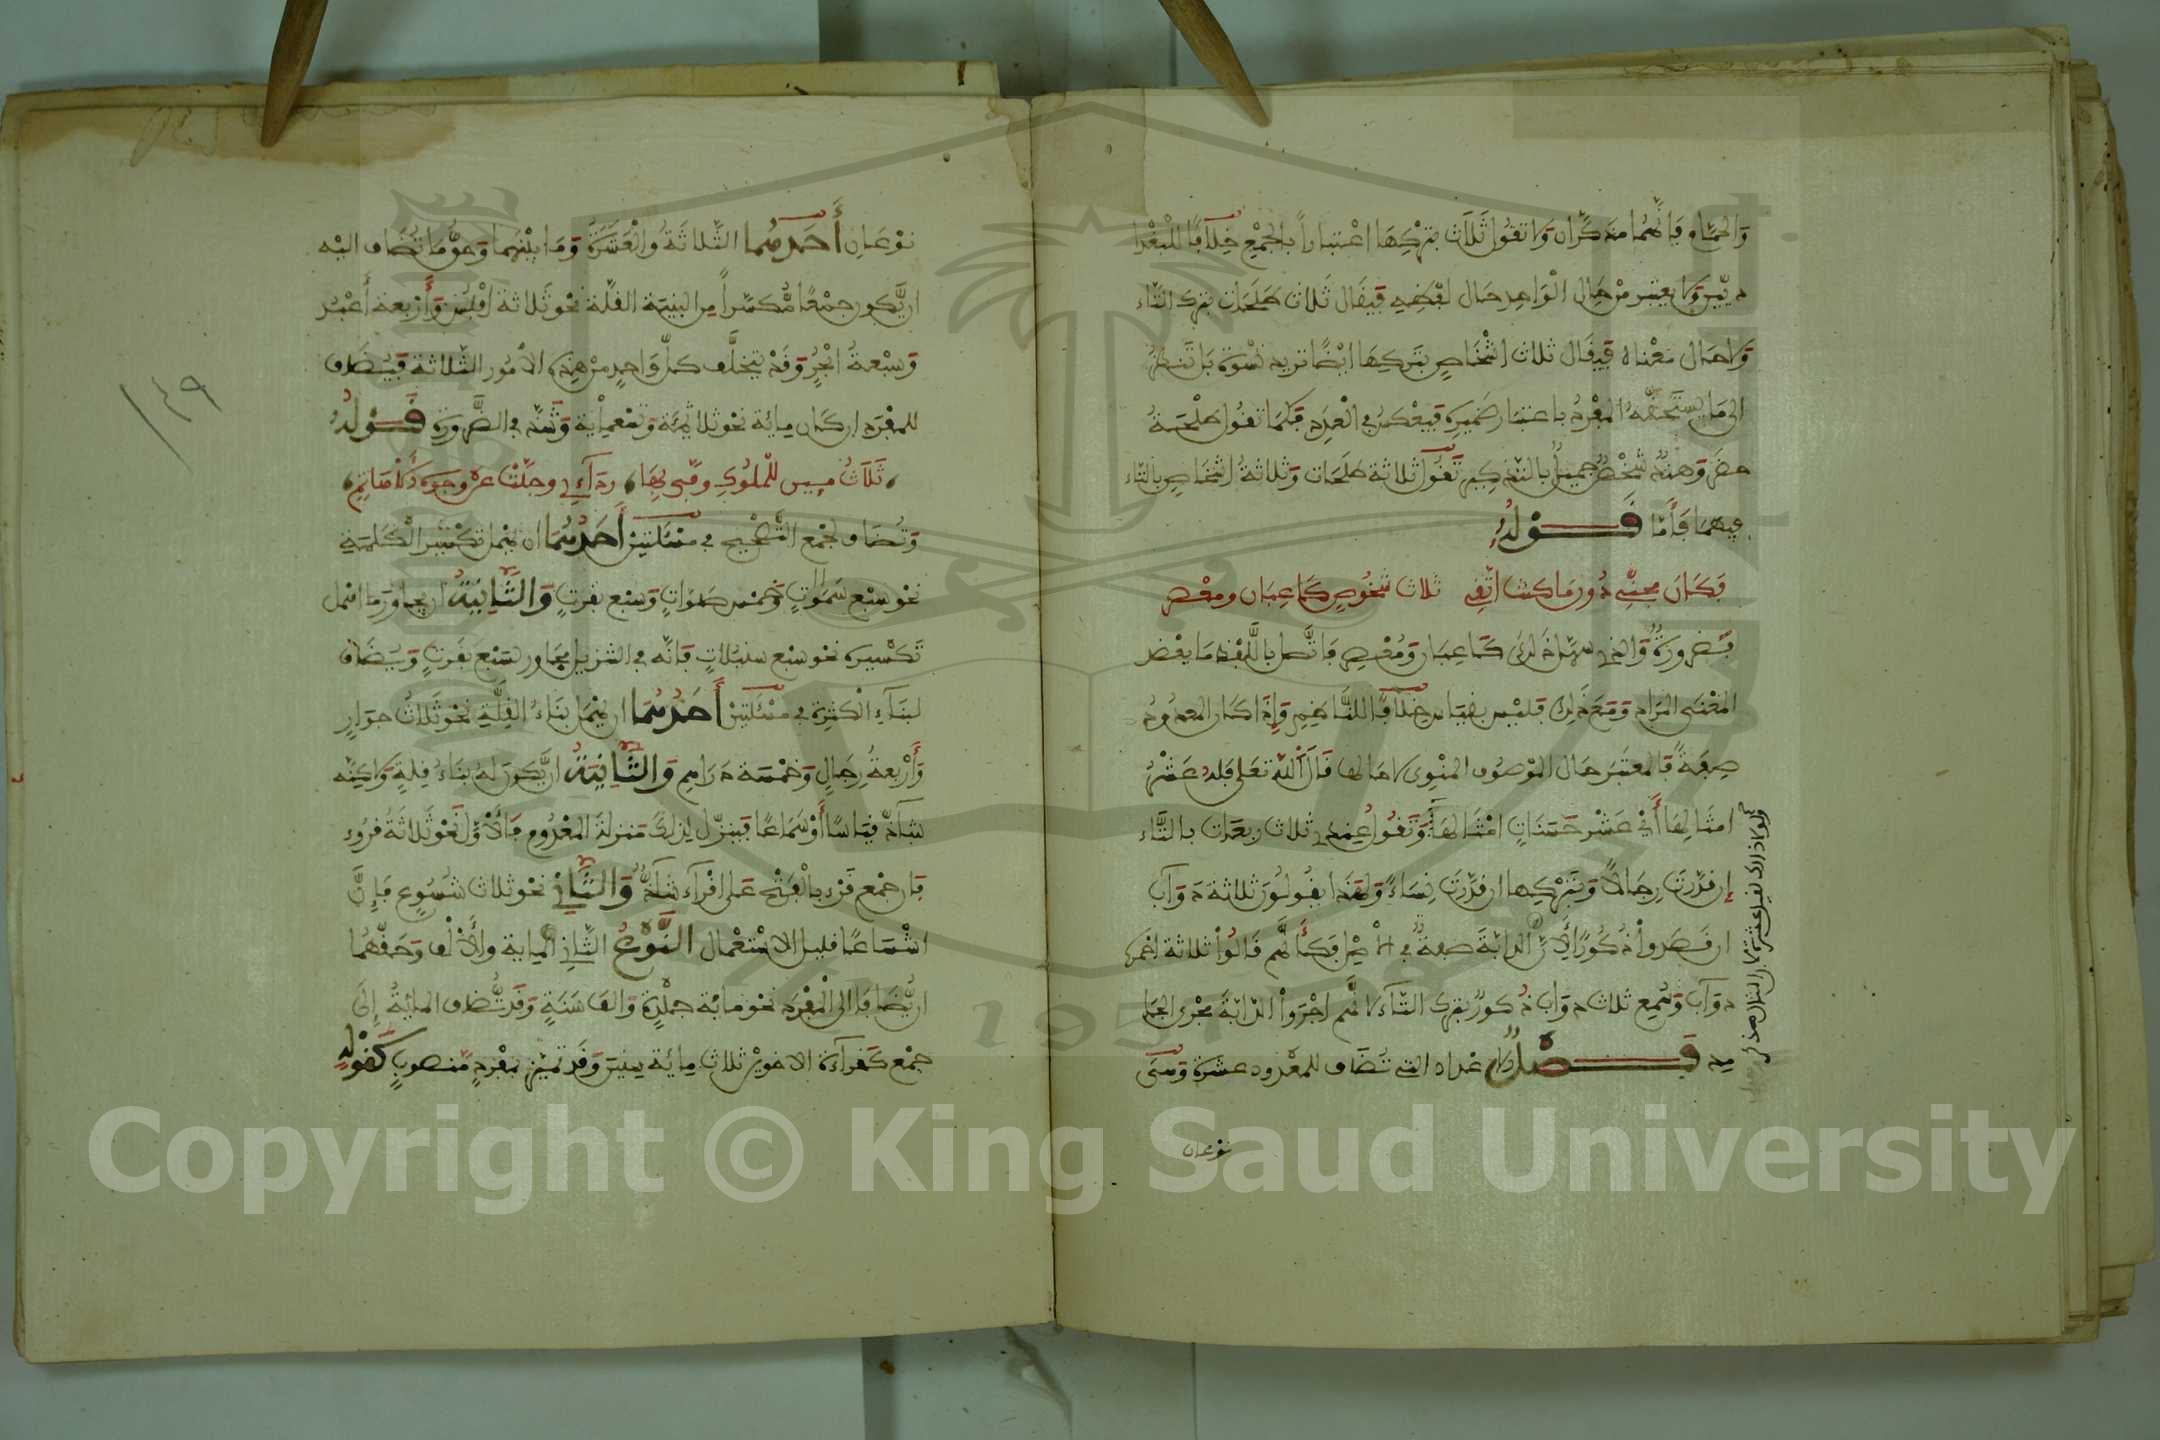 والحمام فإنهما مذكران ولا تقول ثلاث بتركها اعتبارًا بالجمع خلافًا للبغدا
ديين ولا يعتبر من حال الواحد حال لفظه فيقال ثلاث طلحات بترك التاء
ولا حال معناه فيقال ثلاث أشخاص بتركها أيضًا تريد نسوة بل تنظر
إلى ما يستحقه المفرد باعتبار ضميره فيعكس في العدد فكما تقول طلحة
حضر وهند شخص جميل بالتذكير تقول ثلاثة طلحات وثلاثة أشخاص بالتاء
فيهما فأما قوله
فكان مجني دون ما كنت أتقي ثلاث شخوص كاعبان ومعصر
فضرورة والذي سهل ذلك كاعبان ومعصر فاتصل باللفظ ما يعضد
المعنى المراد ومع ذلك فليس بقياس خلافًا للناظم وإذا كان المعدود
صفة فالمعتبر حال الموصوف المنوي لا حالها قال الله تعلى فله عشر
أمثالها أي عشر حسنات أمثالها وتقول عندي ثلاث ربعات بالتاء
إن قدرت رجالا وبتركها إن قدرت نساء ولهذا يقولون ثلاثة دواب
إن قصدوا ذكورًا لأن الدابة صفة في الأصل فكأنهم قالوا ثلاثة أحمرة
دواب وسمع ثلاث دواب ذكور بترك التاء لأنهم أجروا الدابة مجرى الجا
مد فصل الأعداد التي تضاف للمعدود عشرة وهي
نوعان
نوعان أحدهما الثلاثة والعشرة وما بينهما وحق ما تضاف إليه
أن يكون جمعًا مكسرًا من أبنية القلة نحو ثلاثة أفلس وأربعة أعبد
وسبعة أبحر وقد يتخلف كل واحد من هذه الأمور الثلاثة فيضاف
للمفرد إن كان مائة نحو ثلاثمئة وتسعمائة وشذ في الضرورة قوله
ثلاث مئين للملوك وفى بها ردائي وجلت عن وجوه الأهاتم
وتضاف لجمع التصحيح في مسئلتين أحدهما أن يهمل تكسير الكلمة
نحو سبع سموات وخمس صلوات وسبع بقرت والثانية أن يجاور ما أهمل
تكسيره نحو سبع سنبلات فإنه في التنزيل مجاور لسبع بقرت ويضاف
لبناء الكثرة في مسئلتين أحدهما أن يهمل بناء القلة نحو ثلاث جوار
وأربعة رجال وخمسة دراهم والثانية أن يكون له بناء قلة ولكنه
شاذ قياسًا أو سماعًا فينزل لذلك منزلة المعدوم فالأول نحو ثلاثة قروء
فإن جمع قرء بالفتح على أقراء شاذ والثاني نحو ثلاث شسوع فإن
أشساعًا قليل الاستعمال النوع الثاني المائة والألف وحقهما
أن يضافا إلى المفرد نحو مائة جلدة والف سنة وقد تضاف المائة إلى
جمع كقراءة الأخوين ثلاث مائة سنين وقد تميز بمفرد منصوب كقوله
١٤٩
Copyright © King Saud University
1957